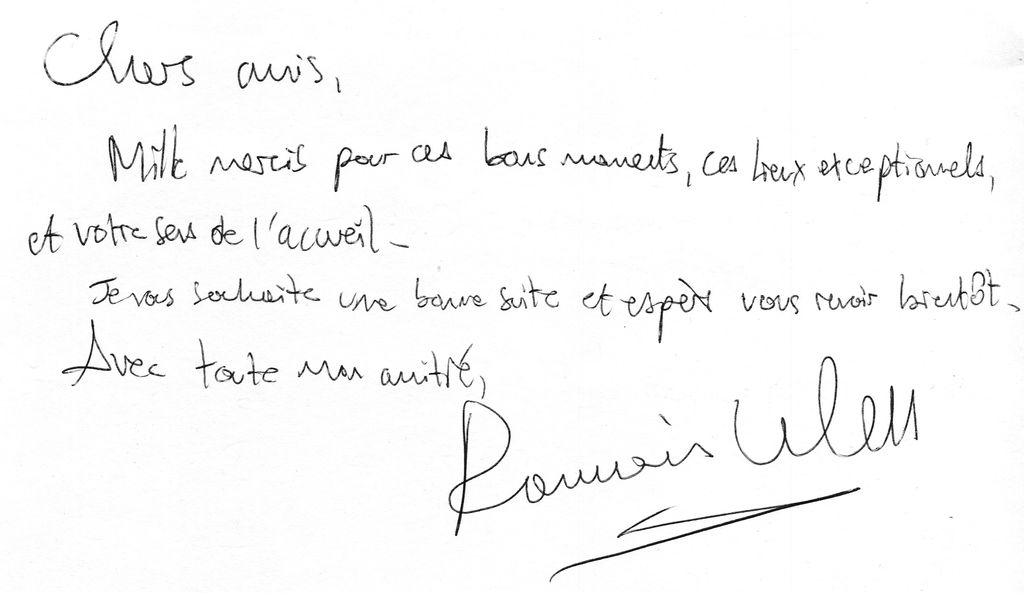 Chers amis,
Mille mercis pour ces bons moments, ces lieux exceptionnels,
et votre sens de l'accueil_
Je vous souhaite une bonne suite et espère vous revoir bientôt.
Avec toute mon amitié,
Romain